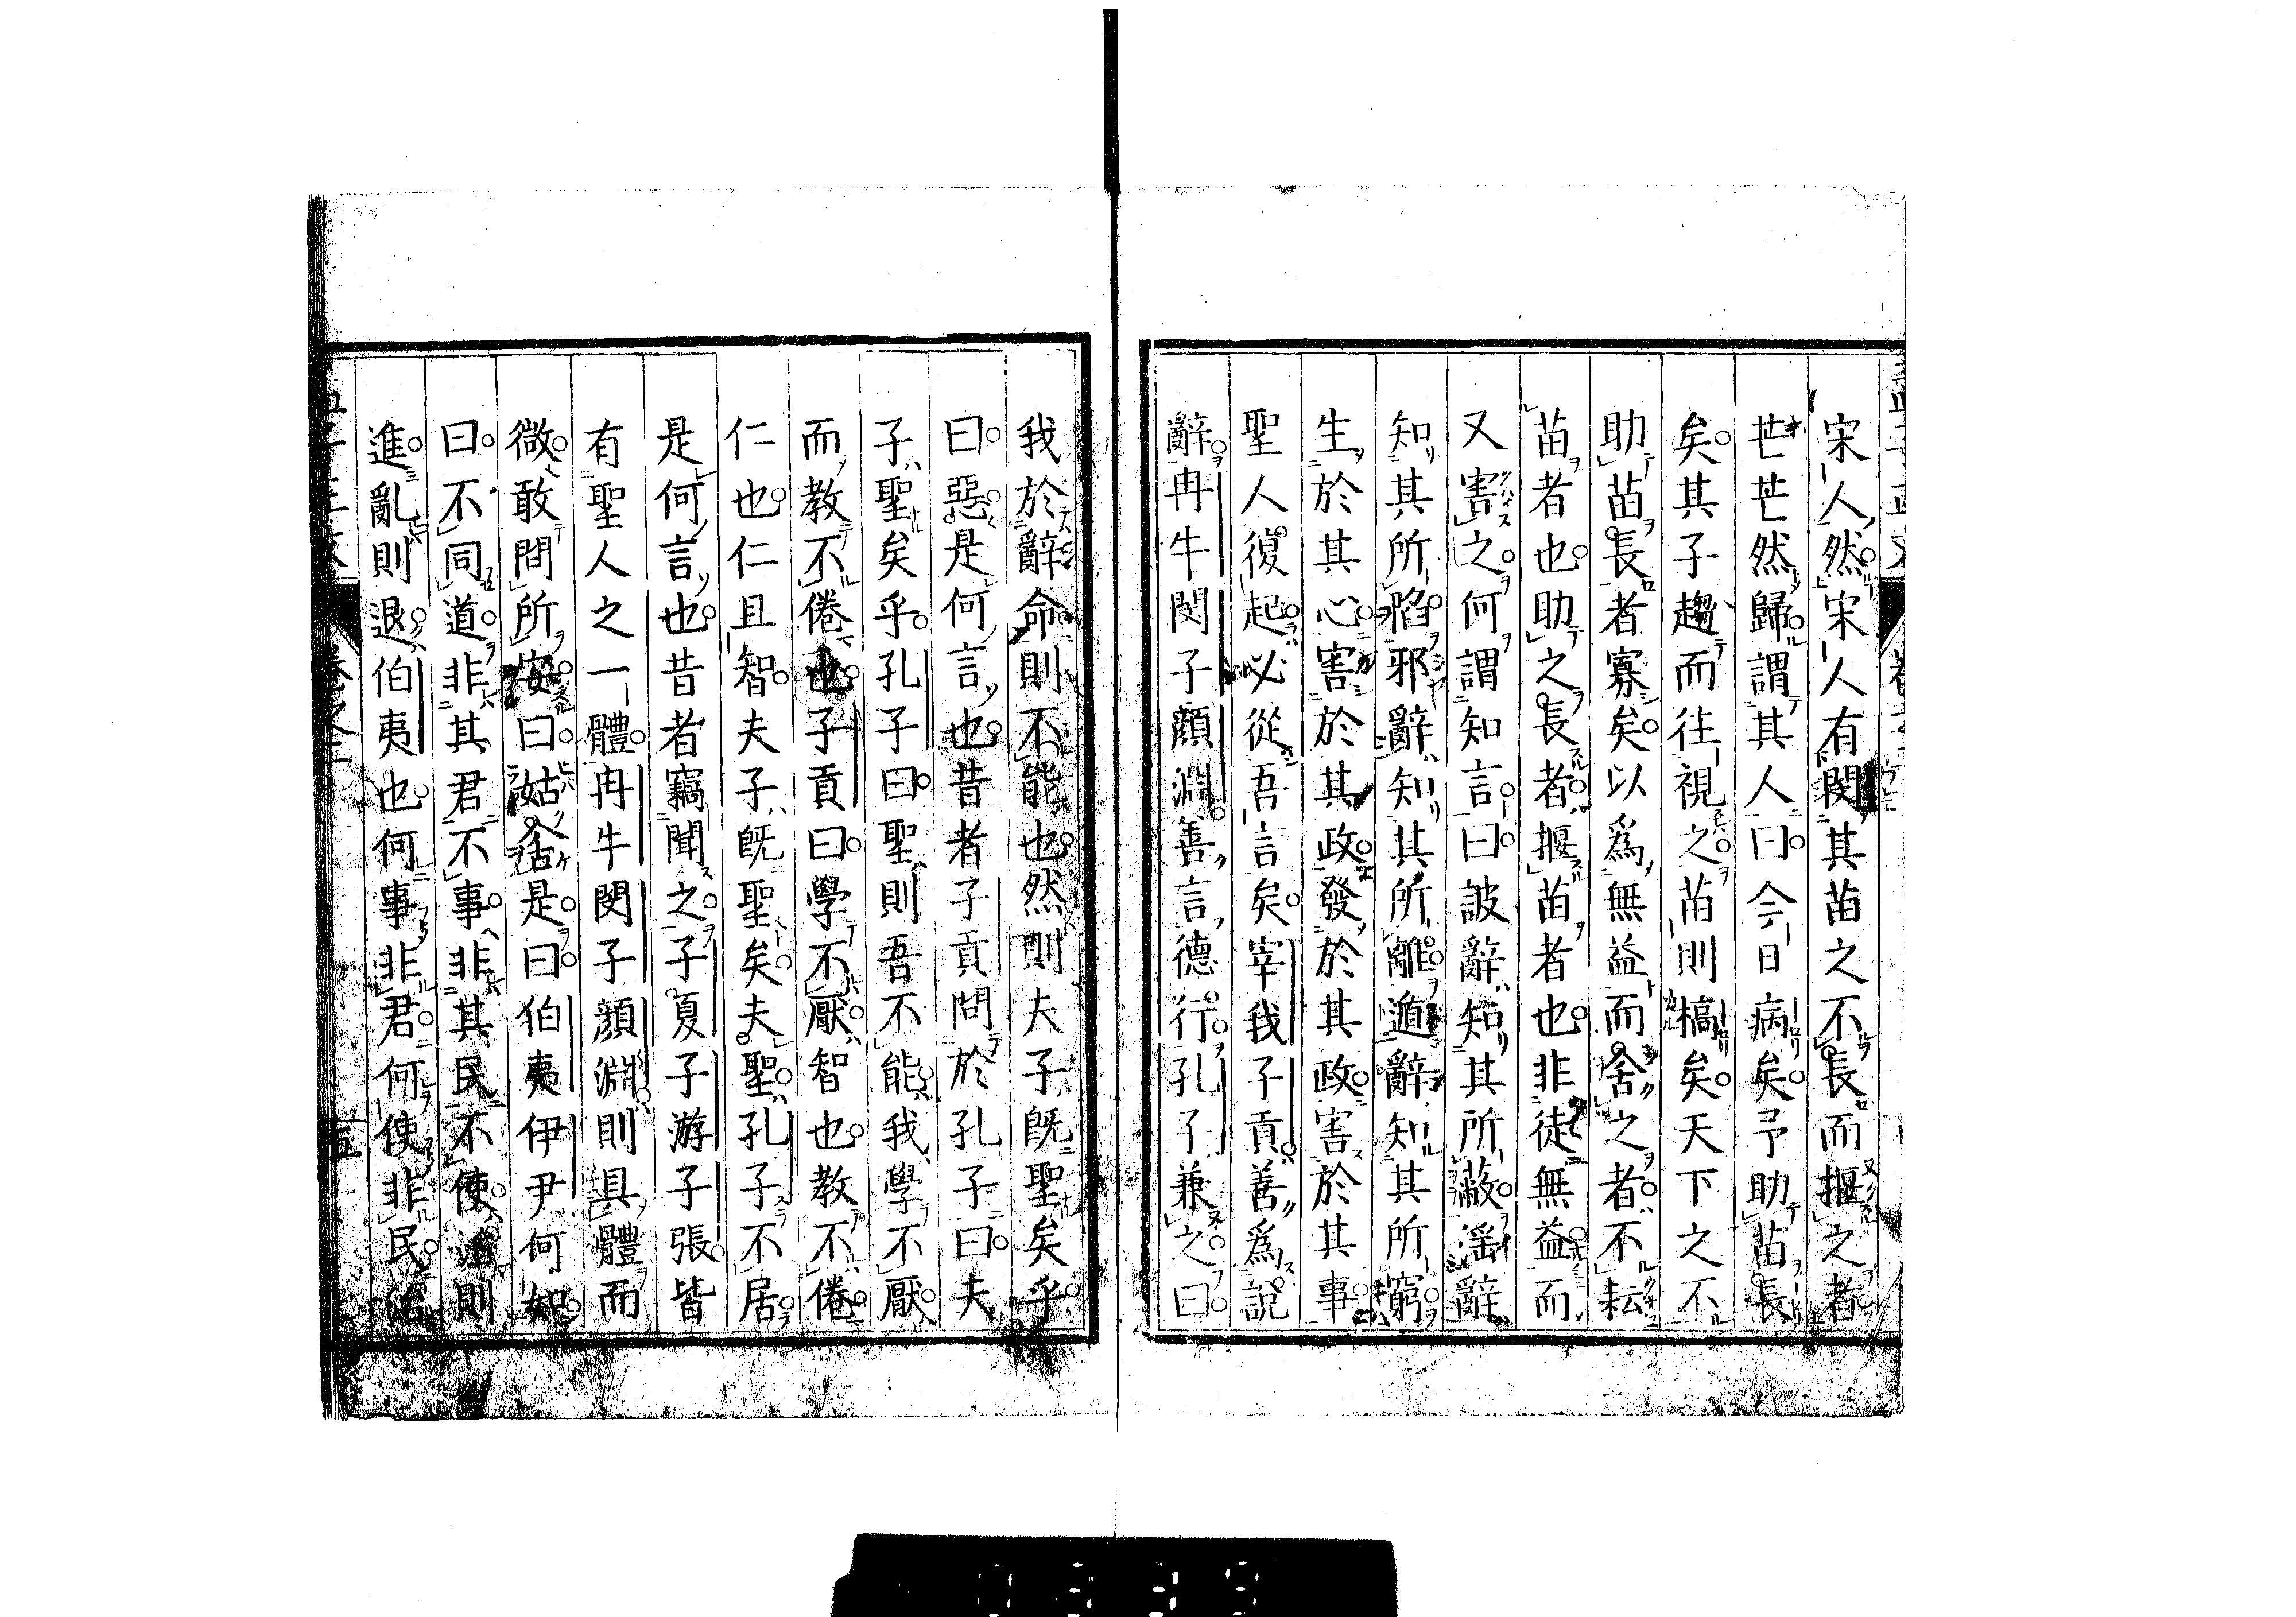 宋人然宋人有閔其苗之不長而揠之者
芒芒然歸謂其人曰今日病矣予助苗長
矣其子趨而往視之苗則槁矣天下之不
助苗長者寡矣以爲無益而舍之者不耘
苗者也助之長者揠苗者也非徒無益而
又害之何謂知言曰詖辭知其所蔽淫辭
知其所陷邪辭知其所離遁辭知其所窮
生於其心害於其政發於其政害於其事
聖人復起必從吾言矣宰我子貢善爲說
辭冉牛閔子顔淵善言德行孔子兼之曰
我於辭命則不能也然則夫子既聖矣乎
曰惡是何言也昔者子貢問於孔子曰夫
子聖矣乎孔子曰聖則吾不能我學不厭
而教不倦也子貢曰學不厭智也教不倦
仁也仁且智夫子既聖矣夫聖孔子不居
是何言也昔者竊聞之子夏子游子張皆
有聖人之一體冉牛閔子顔淵則具體而
微敢問所安曰姑舍是曰伯夷伊尹何如
曰不同道非其君不事非其民不使治則
進亂則退伯夷也何事非君何使非民治